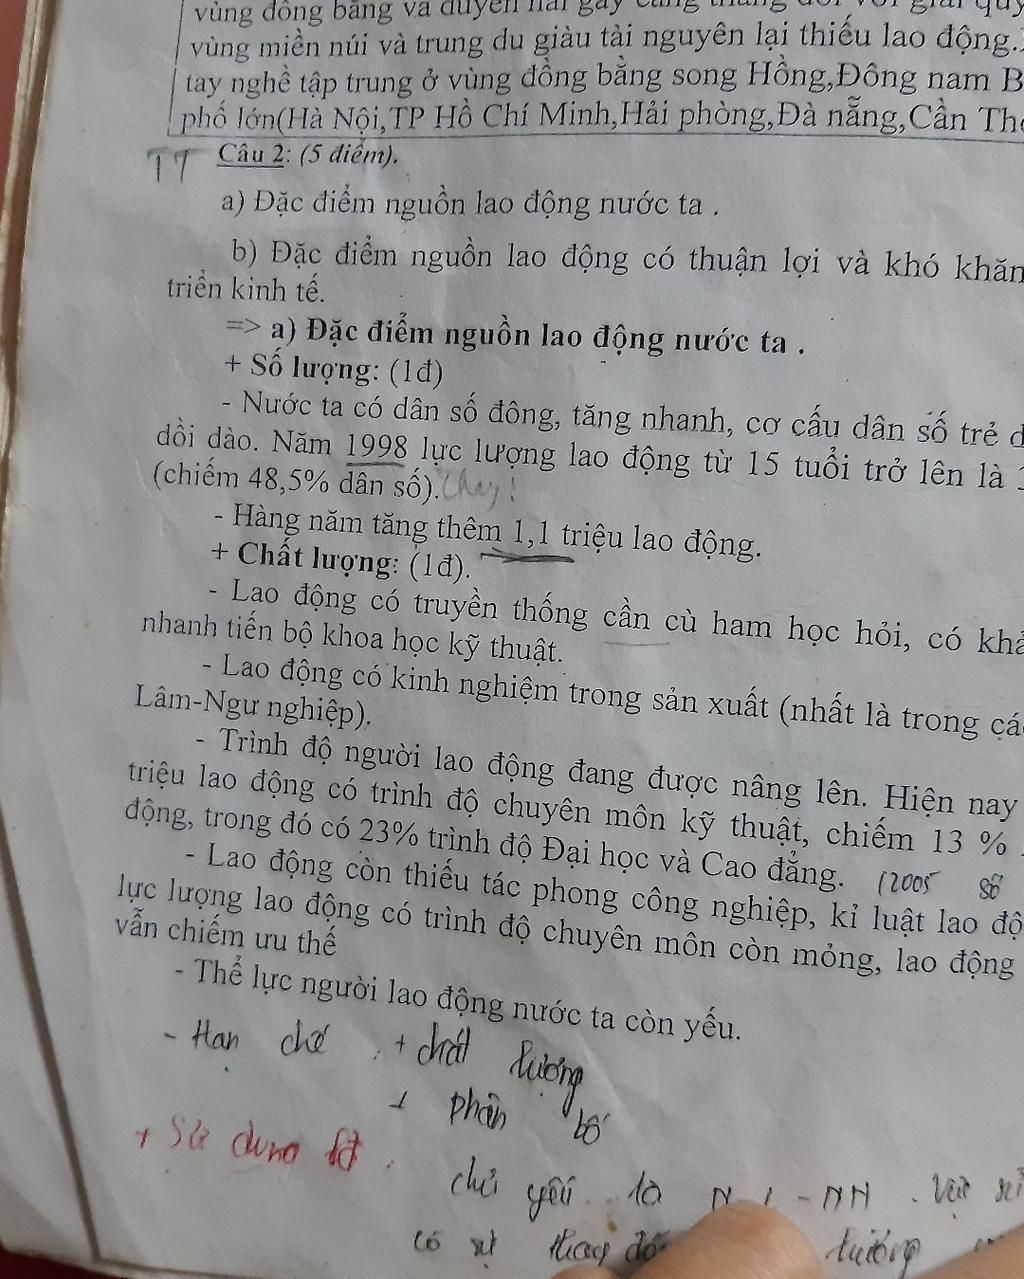 vùng đồng bằng và duyên hải gây căng thẳng đối với giải quy
vùng miền núi và trung du giàu tài nguyên lại thiếu lao động.
tay nghề tập trung ở vùng đồng bằng song Hồng,Đông nam B
phố lớn(Hà Nội,TP Hồ Chí Minh,Hải phòng,Đà nẵng,Cần Thơ
TT Câu 2: (5 điểm).
a) Đặc điểm nguồn lao động nước ta .
b) Đặc điểm nguồn lao động có thuận lợi và khó khăn
triển kinh tế.
=> a) Đặc điểm nguồn lao động nước ta .
+ Số lượng: (1đ)
- Nước ta có dân số đông, tăng nhanh, cơ cấu dân số trẻ d
dồi dào. Năm 1998 lực lượng lao động từ 15 tuổi trở lên là
(chiếm 48,5% dân số).
- Hàng năm tăng thêm 1,1 triệu lao động.
+ Chất lượng: (1đ).
- Lao động có truyền thống cần cù ham học hỏi, có khả
nhanh tiến bộ khoa học kỹ thuật.
- Lao động có kinh nghiệm trong sản xuất (nhất là trong các
Lâm-Ngư nghiệp).
- Trình độ người lao động đang được nâng lên. Hiện nay
triệu lao động có trình độ chuyên môn kỹ thuật, chiếm 13 %
động, trong đó có 23% trình độ Đại học và Cao đẳng. (2005 số
- Lao động còn thiếu tác phong công nghiệp, kỉ luật lao độ
lực lượng lao động có trình độ chuyên môn còn mỏng, lao động
vẫn chiếm ưu thế
- Thể lực người lao động nước ta còn yếu.
- Hạn chế : + chất lượng
+ phân bố
+ Sử dụng lđ.
chủ yếu là N-L-NN.
có sự thay đổi